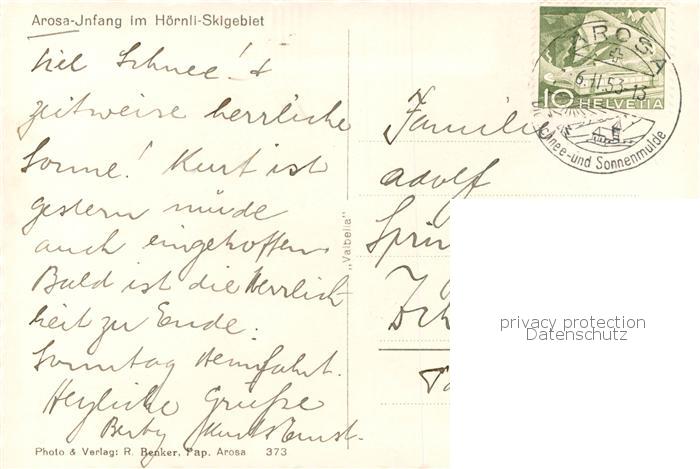 Arosa-Jnfang im Hörnli-Skigebiet
viel Schnee! &
zeitweise herrliche
Sonne! Kurt ist
gestern müde
auch eingetroffen
Bald ist die Herrlich
keit zu Ende.
Sonntag Heimfahrt.
Herzliche Grüße
Berty Kurt Ernst.
Photo & Verlag: R. Benker, Pap. Arosa 373
"Valbella"
AROSA
6.II.53-13
Schnee-und Sonnenmulde
10 HELVETIA
Famili
Adolf
privacy protection
Datenschutz